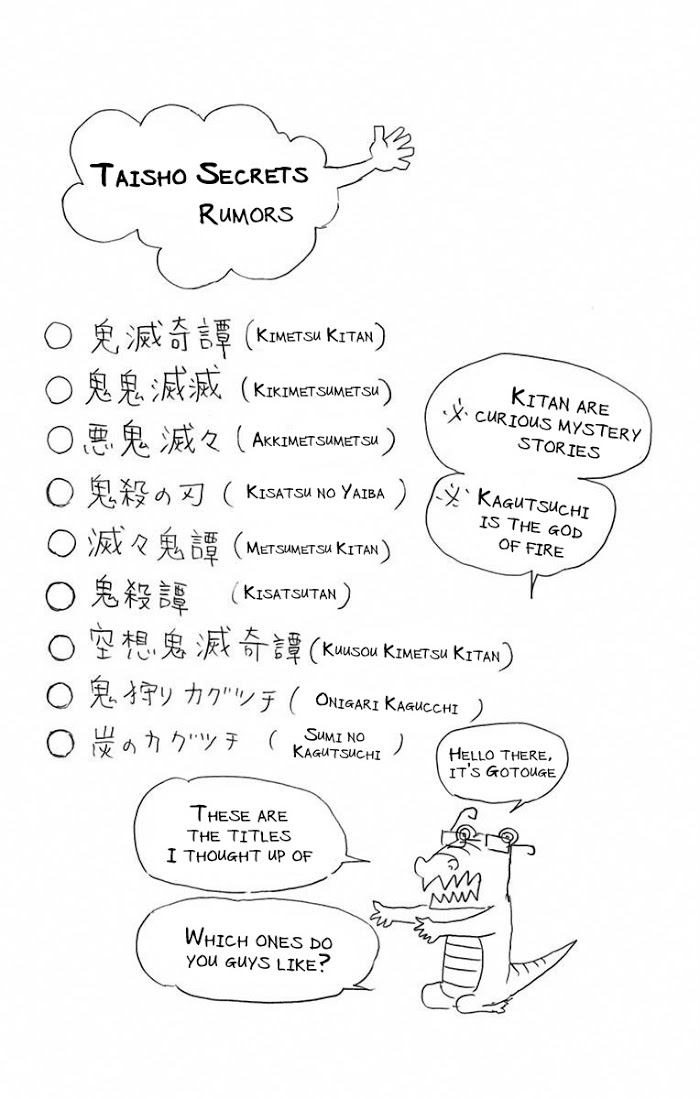 Taisho Secrets
Rumors
鬼滅奇譚 (Kimetsu Kitan)
鬼鬼滅滅 (Kikimetsumetsu)
悪鬼滅々 (Akkimetsumetsu)
鬼殺の刃 (Kisatsu no Yaiba)
滅々鬼譚 (Metsumetsu Kitan)
鬼殺譚 (Kisatsutan)
空想鬼滅奇譚 (Kuusou Kimetsu Kitan)
鬼狩りカグツチ (Onigari Kagucchi)
炭のカグツチ (Sumi no
Kagutsuchi)
※ Kitan are
curious mystery
stories
※ Kagutsuchi
is the god
of fire
Hello there,
it's Gotouge
These are
the titles
I thought up of
Which ones do
you guys like?